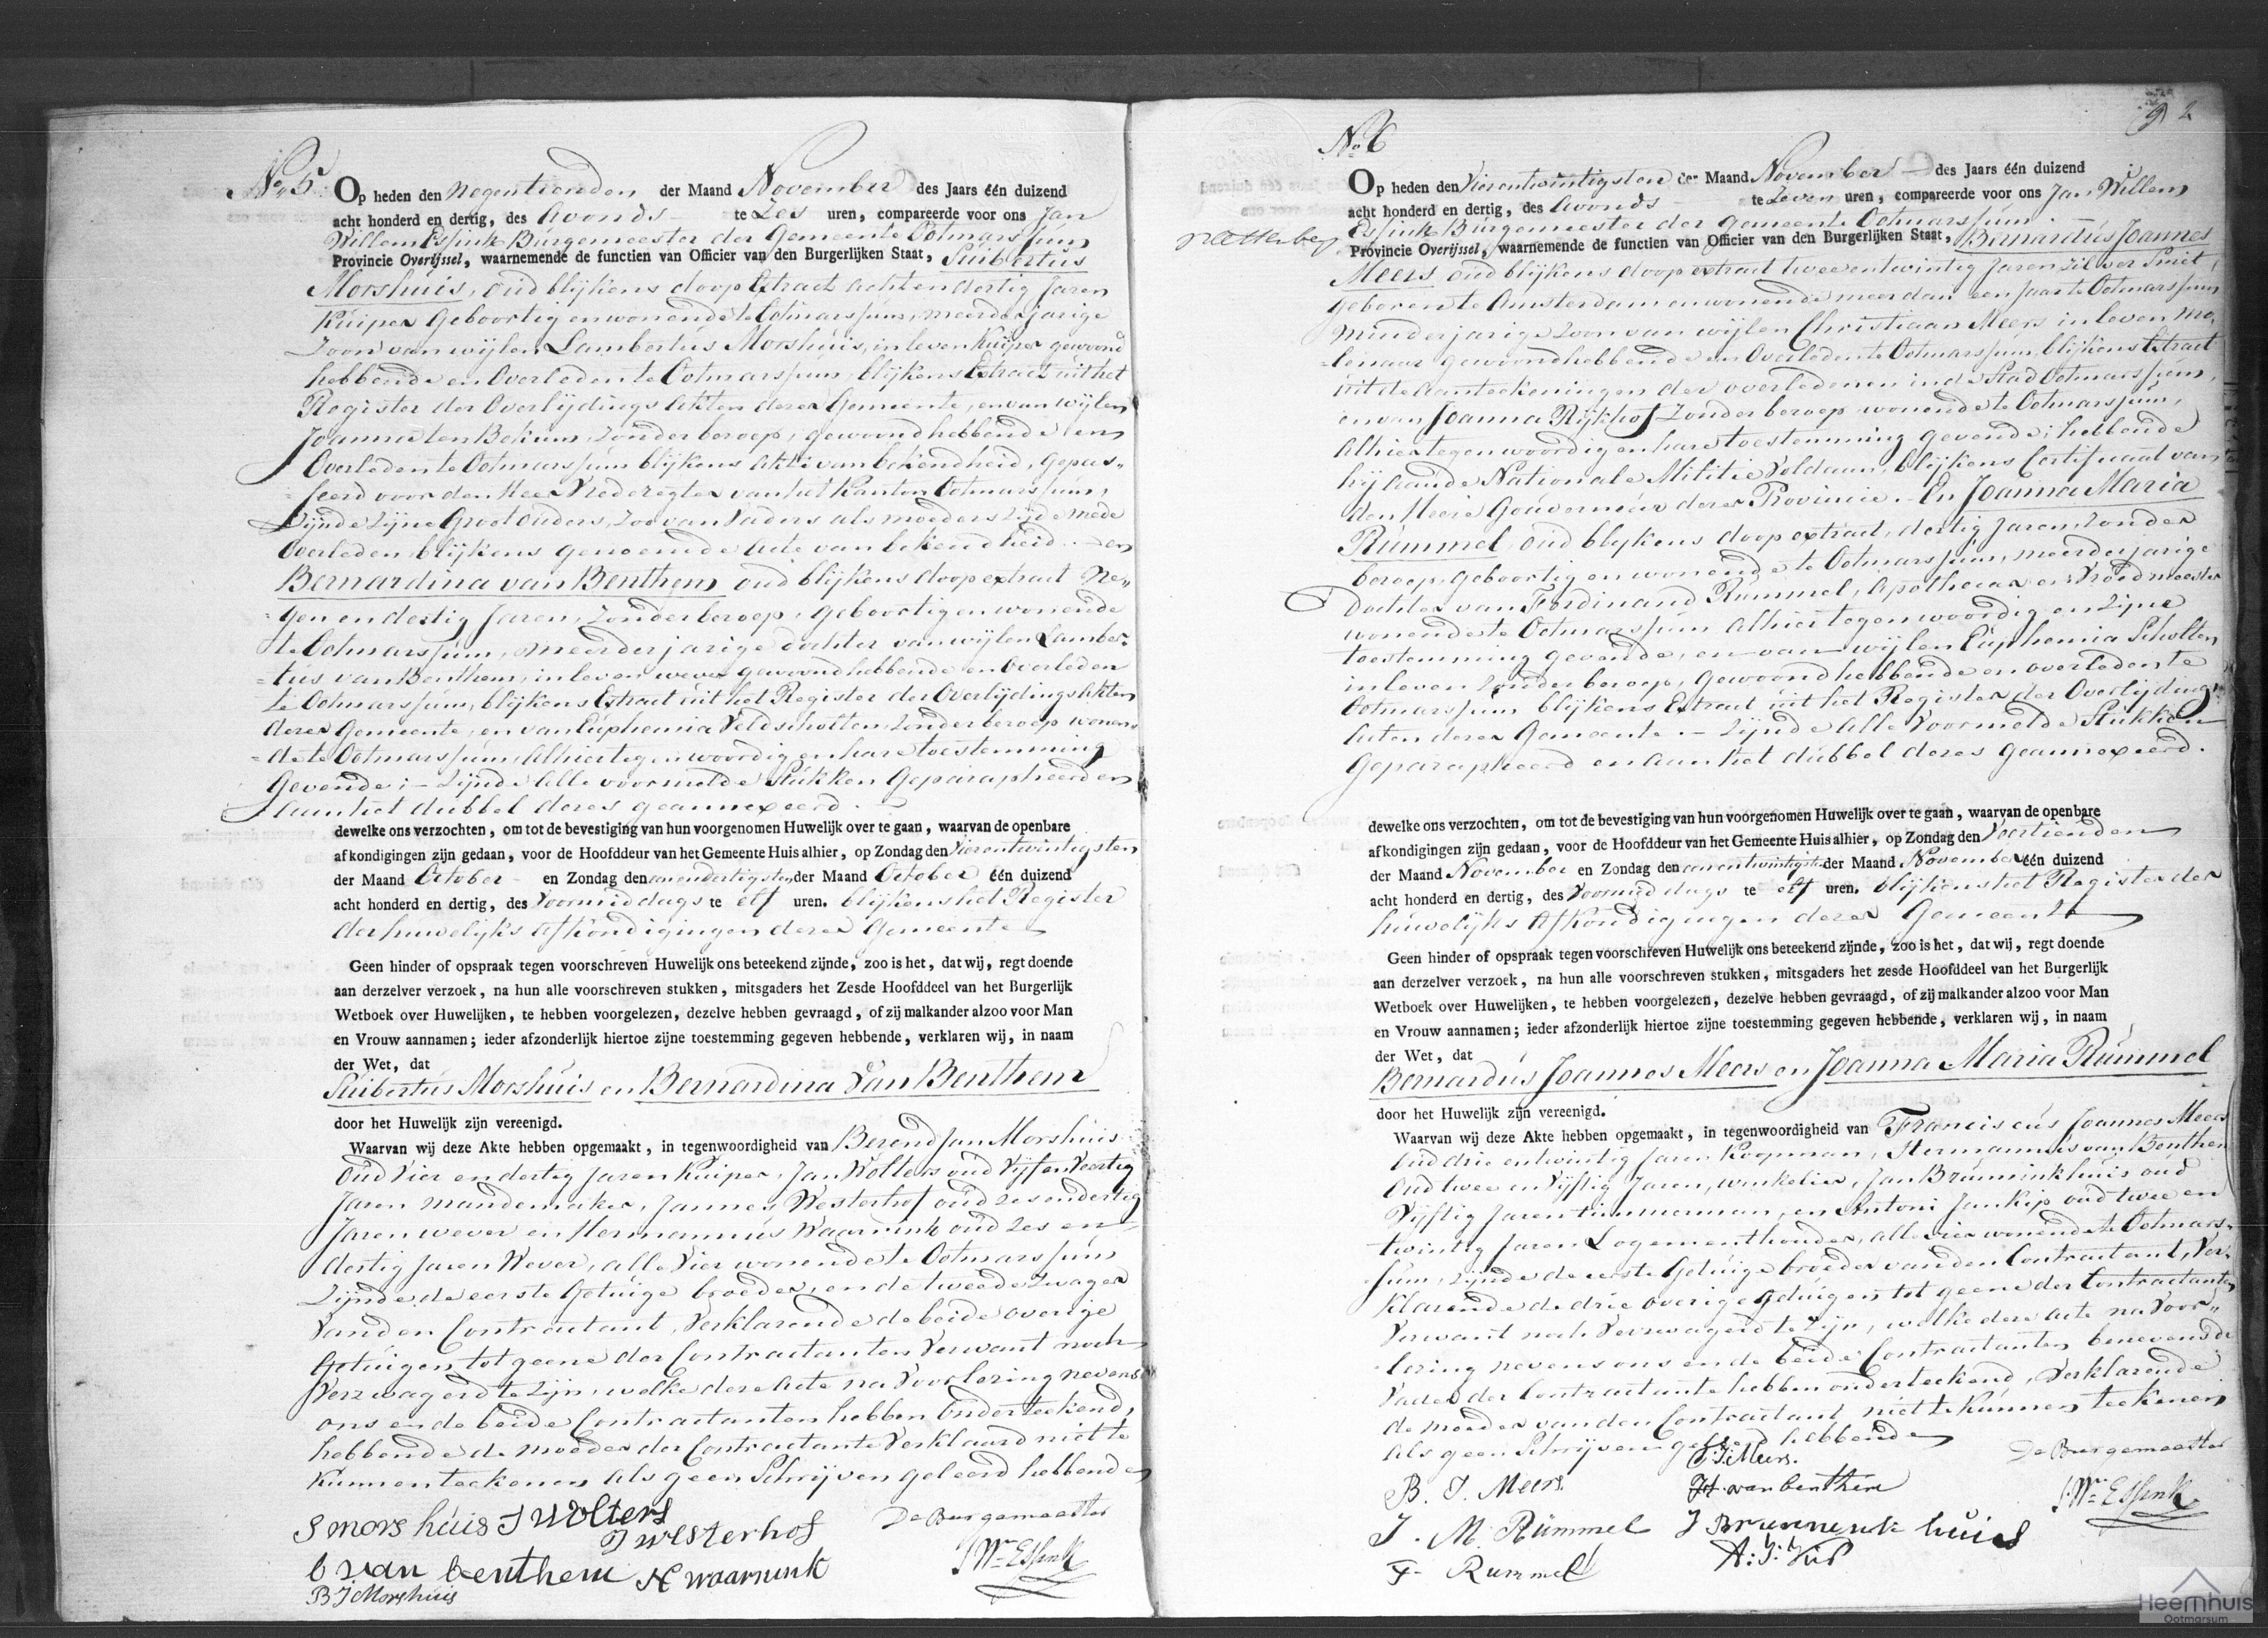 No 5 Op heden den Negentienden der Maand November des Jaars één duizend
acht honderd en dertig, des Avonds te Zes uren, compareerde voor ons Jan
Willem Essink Burgemeester der Gemeente Ootmarssum
Provincie Overijssel, waarnemende de functien van Officier van den Burgerlijken Staat, Suibertus
Morshuis, oud blijkens doop Extract acht en dertig Jaren
Kuiper Geboortig en wonende te Ootmarssum, meerderjarige
Zoon van wijlen Lambertus Morshuis, in leven Kuiper gewoond
hebbende en Overleden te Ootmarssum, blijkens Extract uit het
Register der Overlijdings Akten dezer Gemeente, en van wijlen
Joanna ten Bekum, zonder beroep, gewoond hebbende en
Overleden te Ootmarssum blijkens Akte van bekendheid, gepas„
„seerd voor den Heer Vrederegter van het Kanton Ootmarssum,
Zijnde Zijne Grootouders, zoo van Vaders als moeders zijde mede
Overleden, blijkens genoemde Acte van bekendheid. – en
Bernardina van Benthem oud blijkens doop extract Ne„
„gen en dertig Jaren, zonder beroep, geboortig en wonende
te Ootmarssum, meerderjarige dochter van wijlen Lamber„
„tus van Benthem, in leven wever gewoond hebbende en Overleden
te Ootmarssum, blijkens Extract uit het Register der Overlijdings Akten
dezer Gemeente, en van Euphemia Veldscholten, zonder beroep wonen„
„de te Ootmarssum, alhier tegenwoordig en hare toestemming
Gevende; – Zijnde Alle voormelde Stukken Geparapheerd en
aan het dubbel dezes geannexeerd. –
dewelke ons verzochten, om tot de bevestiging van hun voorgenomen Huwelijk over te gaan, waarvan de openbare
afkondigingen zijn gedaan, voor de Hoofddeur van het Gemeente Huis alhier, op Zondag den Vierentwintigsten
der Maand October en Zondag den eenendertigsten der Maand October één duizend
acht honderd en dertig, des Voormiddags te elf uren. blijkens het Register
der huwelijks Afkondigingen dezer Gemeente
Geen hinder of opspraak tegen voorschreven Huwelijk ons beteekend zijnde, zoo is het, dat wij, regt doende
aan derzelver verzoek, na hun alle voorschreven stukken, mitsgaders het Zesde Hoofddeel van het Burgerlijk
Wetboek over Huwelijken, te hebben voorgelezen, dezelve hebben gevraagd, of zij malkander alzoo voor Man
en Vrouw aannamen; ieder afzonderlijk hiertoe zijne toestemming gegeven hebbende, verklaren wij, in naam
der Wet, dat
Suibertus Morshuis en Bernardina Van Benthem
door het Huwelijk zijn vereenigd.
Waarvan wij deze Akte hebben opgemaakt, in tegenwoordigheid van Berend Jan Morshuis
Oud Vier en dertig Jaren Kuiper, Jan Wolters oud Vijf en Veertig
Jaren mandemaker, Jannes Westerhof oud zes en dertig
Jaren wever en Hermannus Waarnink oud zes en
dertig Jaren Wever, alle Vier wonende te Ootmarssum
Zijnde de eerste Getuige broeder, en de tweede zwager
Van den Contractant, Verklarende de beide overige
Getuigen tot geene der Contractanten Verwant noch
Verzwagerd te zijn, welke deze Acte na Voorlezing nevens
ons en de beide Contractanten hebben Onderteekend,
hebbende de moeder der Contractante Verklaard niet te
Kunnen teekenen als geen Schrijven geleerd hebbende
S morshuis J Wolters
J westerhof
De Burgemeester
B van benthem H waarnink
J Wm Essink
B J Morshuis
9 2
No 6
Op heden den Vierentwintigsten der Maand November des Jaars één duizend
acht honderd en dertig, des Avonds te Zeven uren, compareerde voor ons Jan Willem
Essink Burgemeester der Gemeente Ootmarssum
Provincie Overijssel, waarnemende de functien van Officier van den Burgerlijken Staat, Bernardus Joannes
Meers oud blijkens doop extract twee en twintig Jaren zilver Smit,
geboren te Amsterdam en wonende meer dan een Jaar te Ootmarssum
minderjarige Zoon van wijlen Christiaan Meers in leven mo„
„lenaar gewoond hebbende en Overleden te Ootmarssum, blijkens Extract
uit de Aanteekeningen der overledenen in de Stad Ootmarssum,
en van Joanna Rijkhof zonder beroep wonende te Ootmarssum,
Alhier tegenwoordig en hare toestemming gevende; hebbende
hij aan de Nationale Militie Voldaan, blijkens Certificaat van
den Heere Gouverneur dezer Provincie. – En Joanna Maria
Rümmel oud blijkens doop extract, dertig Jaren zonder
beroep, geboortig en wonende te Ootmarssum, meerderjarige
Dochter van Ferdinand Rümmel, Apothecar en Vroedmeester
wonende te Ootmarssum Alhier tegenwoordig en Zijne
toestemming gevende, en van wijlen Euphemia Scholten
in leven zonder beroep, gewoond hebbende en overleden te
Ootmarssum blijkens Extract uit het Register der Overlijdings
Acten dezer Gemeente. – Zijnde Alle Voormelde Stukken
Geparapheerd en aan het dubbel dezes geannexeerd.
dewelke ons verzochten, om tot de bevestiging van hun voorgenomen Huwelijk over te gaan, waarvan de openbare
afkondigingen zijn gedaan, voor de Hoofddeur van het Gemeente Huis alhier, op Zondag den Veertienden
der Maand November en Zondag den eenentwintigsten der Maand November één duizend
acht honderd en dertig, des Voormiddags te elf uren. blijkens het Register der
huwelijks Afkondigingen dezer Gemeente
Geen hinder of opspraak tegen voorschreven Huwelijk ons beteekend zijnde, zoo is het, dat wij, regt doende
aan derzelver verzoek, na hun alle voorschreven stukken, mitsgaders het zesde Hoofddeel van het Burgerlijk
Wetboek over Huwelijken, te hebben voorgelezen, dezelve hebben gevraagd, of zij malkander alzoo voor Man
en Vrouw aannamen; ieder afzonderlijk hiertoe zijne toestemming gegeven hebbende, verklaren wij, in naam
der Wet, dat
Bernardus Joannes Meers en Joanna Maria Rümmel
door het Huwelijk zijn vereenigd.
Waarvan wij deze Akte hebben opgemaakt, in tegenwoordigheid van Franciscus Joannes Meers
Oud drie en twintig Jaren Koopman, Hermannus van Benthem
Oud twee en Vijftig Jaren, winkelier, Jan Brüninkhuis oud
Vijftig Jaren timmerman, en Antoni Jan Kip oud twee en
twintig Jaren Logementhouder, alle vier wonende te Ootmars„
sum, zijnde de eerste Getuige broeder van den Contractant, Ver„
klarende de drie overige Getuigen tot geene der Contractanten
Verwant noch Verzwagerd te zijn, welke deze Acte na Voor„
„lezing nevens ons en de beide Contractanten benevens de
Vader der Contractante hebben onderteekend, Verklarende
de moeder van den Contractant niet te Kunnen teekenen
als geen Schrijven geleerd hebbende
F. J. Meers.
De Burgemeester
B. J. Meers
H van benthem
J. Wm Essink
J. M. Rümmel J Brunnenk huis
F. Rummel
A: J: Kip
Heemhuis
Ootmarsum